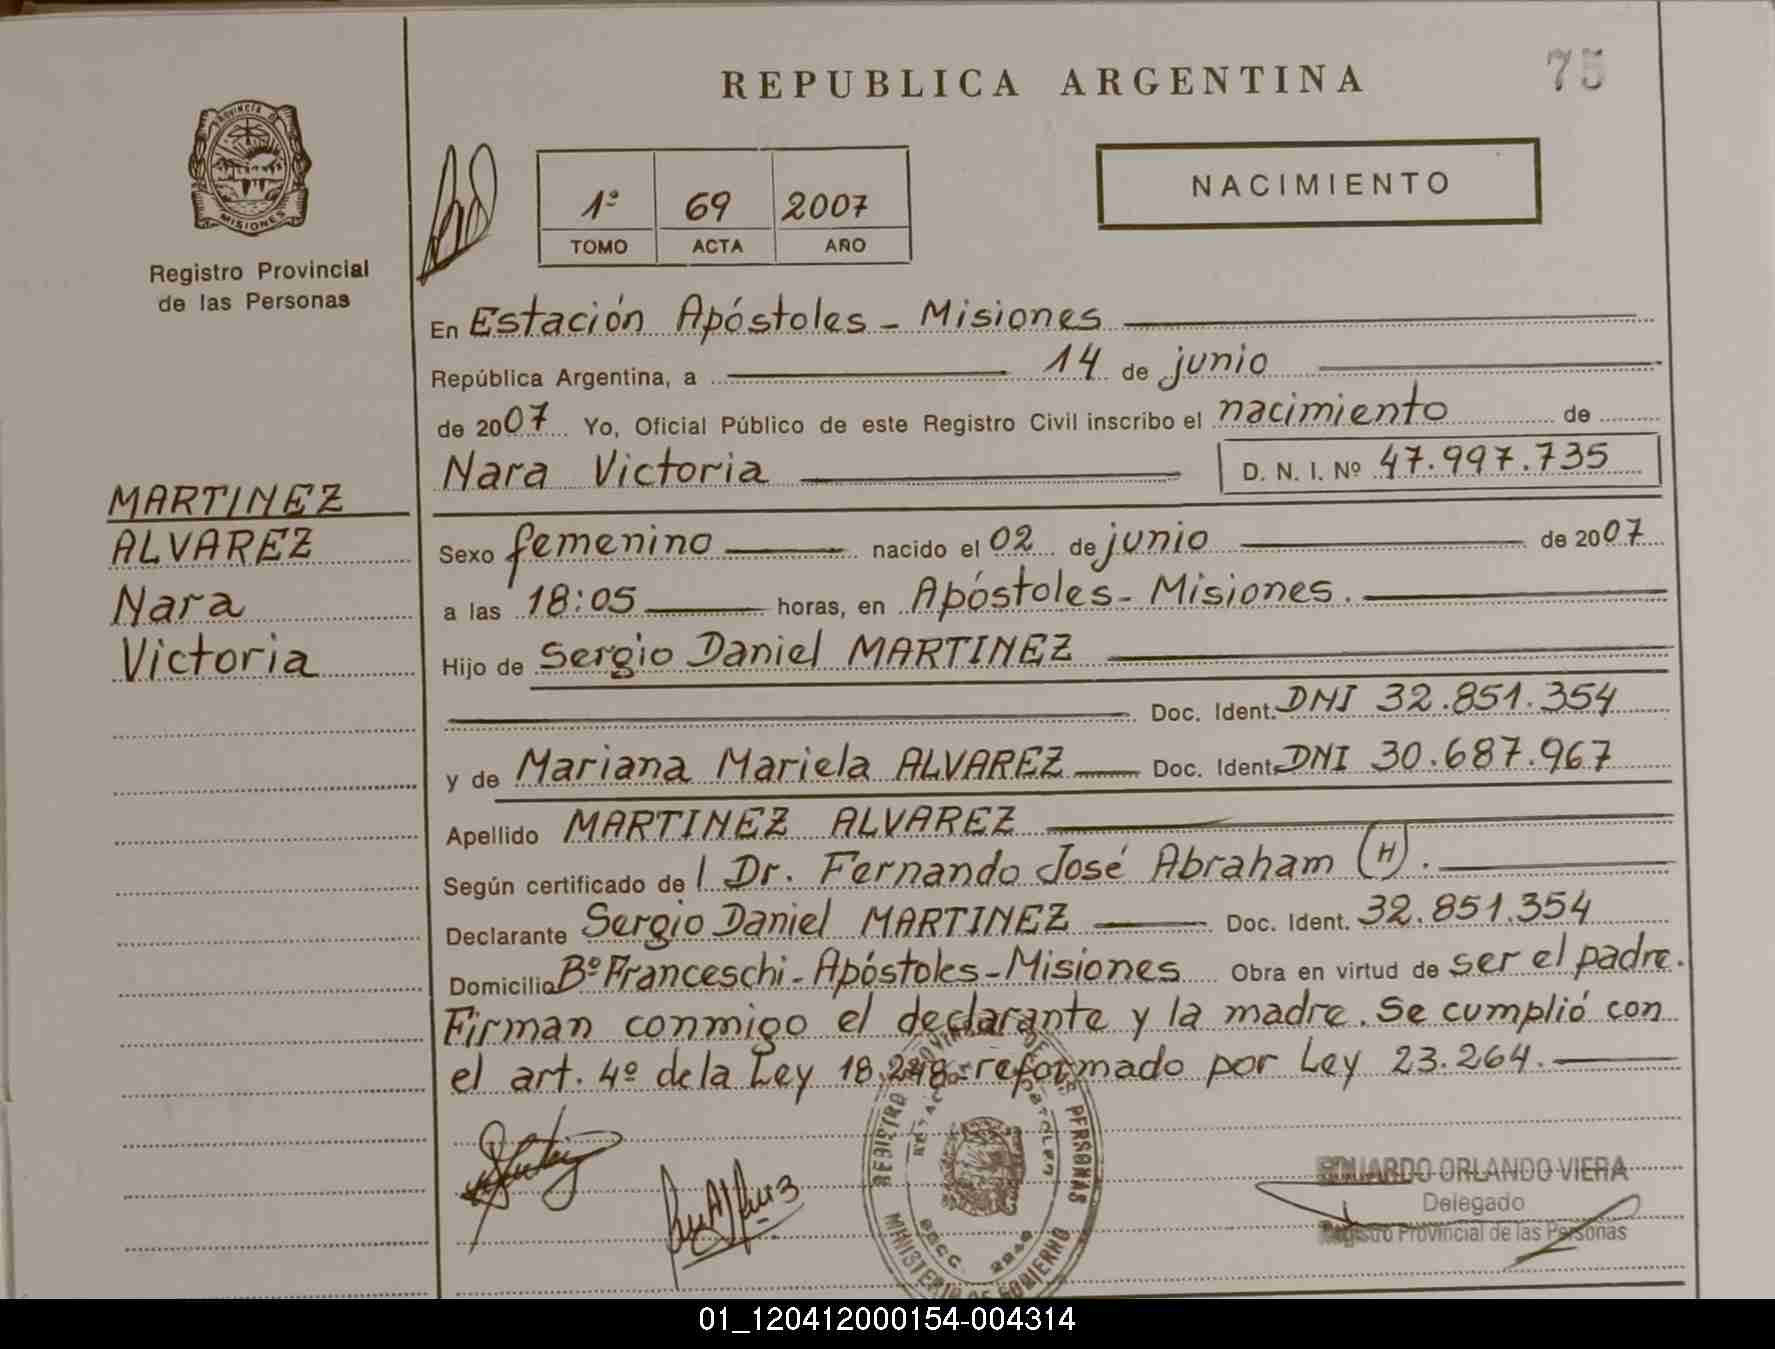 REPUBLICA ARGENTINA
75
PROVINCIA DE
MISIONES
Registro Provincial
de las Personas
1º 69 2007
TOMO ACTA AÑO
NACIMIENTO
En Estación Apóstoles - Misiones
República Argentina, a 14 de junio
de 2007 Yo, Oficial Público de este Registro Civil inscribo el nacimiento de
Nara Victoria D. N. I. Nº 47.997.735
MARTINEZ
ALVAREZ
Nara
Victoria
Sexo femenino nacido el 02 de junio de 2007
a las 18:05 horas, en Apóstoles - Misiones.
Hijo de Sergio Daniel MARTINEZ
Doc. Ident. DNI 32.851.354
y de Mariana Mariela ALVAREZ Doc. Ident. DNI 30.687.967
Apellido MARTINEZ ALVAREZ
Según certificado de l Dr. Fernando José Abraham (H).
Declarante Sergio Daniel MARTINEZ Doc. Ident. 32.851.354
Domicilio Bº Franceschi - Apóstoles - Misiones Obra en virtud de ser el padre.
Firman conmigo el declarante y la madre. Se cumplió con
el art. 4º de la Ley 18.248 reformado por Ley 23.264.
REGISTRO PROVINCIAL DE LAS PERSONAS
MINISTERIO DE GOBIERNO
EDUARDO ORLANDO VIERA
Delegado
Registro Provincial de las Personas
01_120412000154-004314